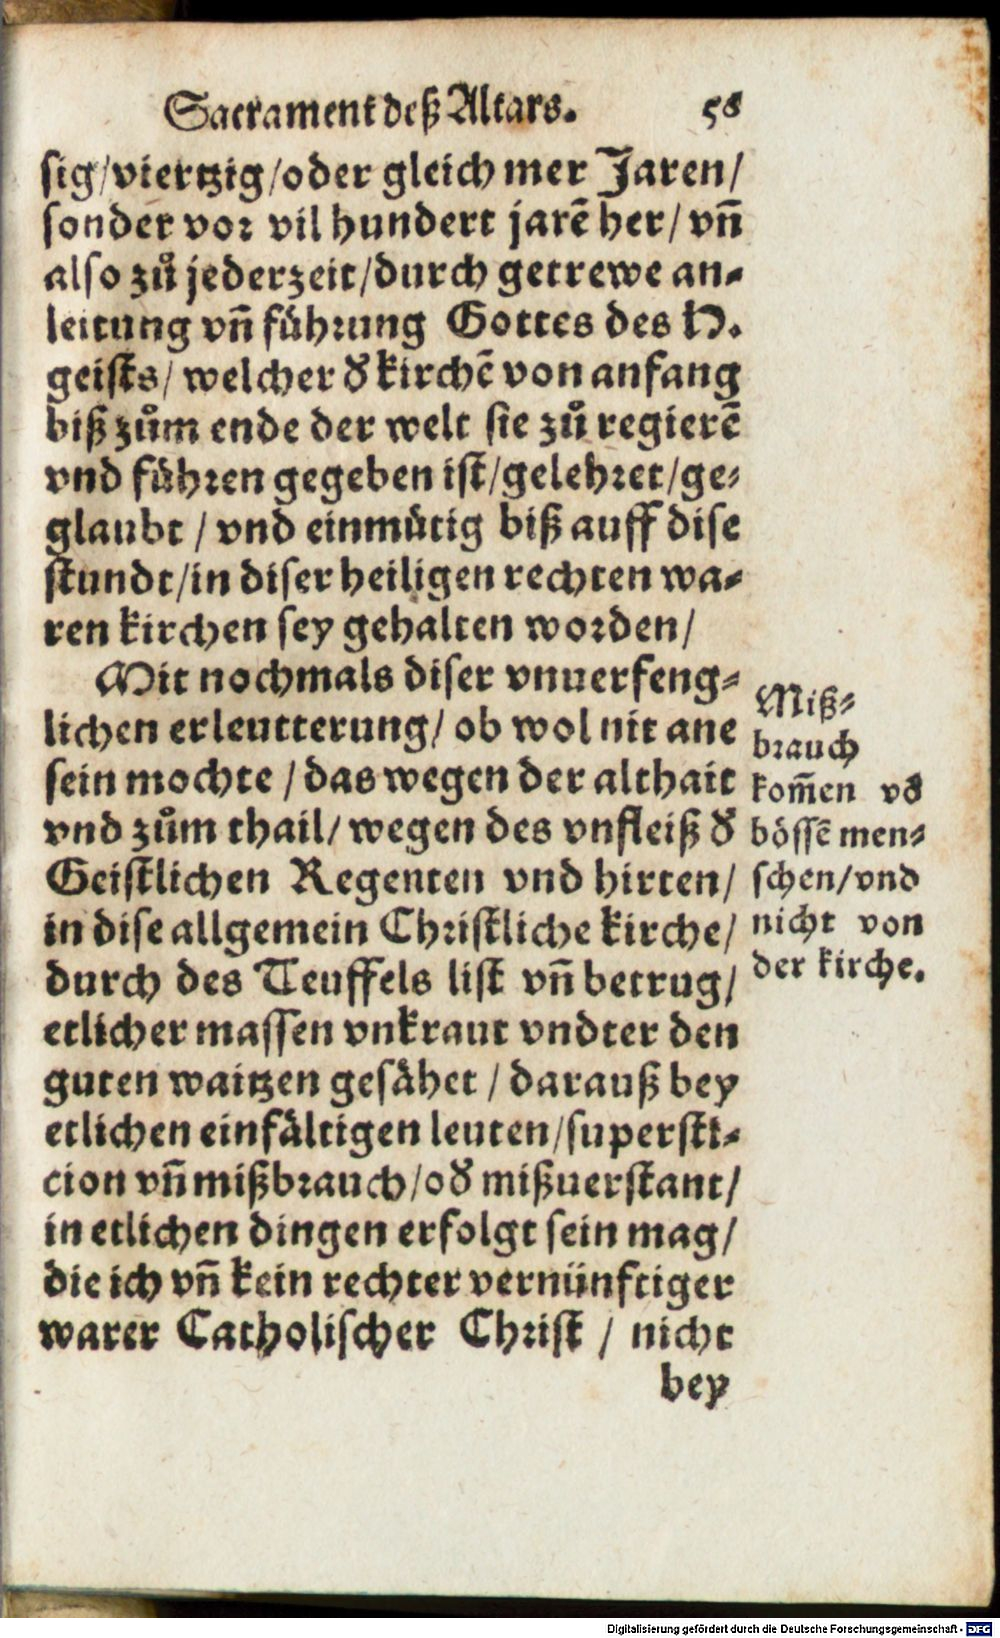 Sacrament deß Altars. 58
sig/viertzig/oder gleich mer Jaren/
sonder vor vil hundert jarē her/ vñ
also zů jederzeit/durch getrewe an-
leitung vñ führung Gottes des H.
geists/ welcher d' kirchē von anfang
biß zům ende der welt sie zů regierē
vnd führen gegeben ist/gelehret/ge-
glaubt / vnd einmütig biß auff dise
stundt/in diser heiligen rechten wa-
ren kirchen sey gehalten worden/
Mit nochmals diser vnuerfeng-
lichen erleutterung/ ob wol nit ane
sein mochte / das wegen der althait
vnd zům thail/ wegen des vnfleiß d'
Geistlichen Regenten vnd hirten/
in dise allgemein Christliche kirche/
durch des Teuffels list vñ betrug/
etlicher massen vnkraut vndter den
guten waitzen gesähet / darauß bey
etlichen einfältigen leuten/supersti-
cion vñ mißbrauch/od' mißuerstant/
in etlichen dingen erfolgt sein mag/
die ich vñ kein rechter vernünftiger
warer Catholischer Christ / nicht
bey
Miß-
brauch
kom̄en vō
bössē men-
schen/vnd
nicht von
der kirche.
Digitalisierung gefördert durch die Deutsche Forschungsgemeinschaft - DFG